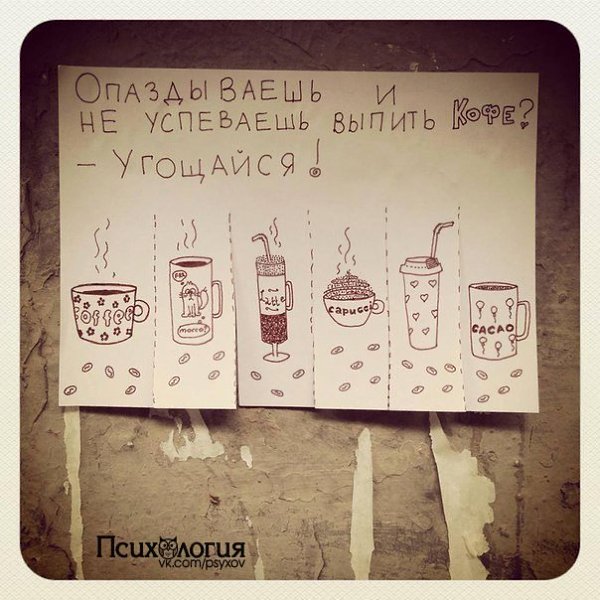 Опаздываешь и
не успеваешь выпить кофе?
– Угощайся!
coffee
Latte
capucci
CACAO
Психология
vk.com/psyxov